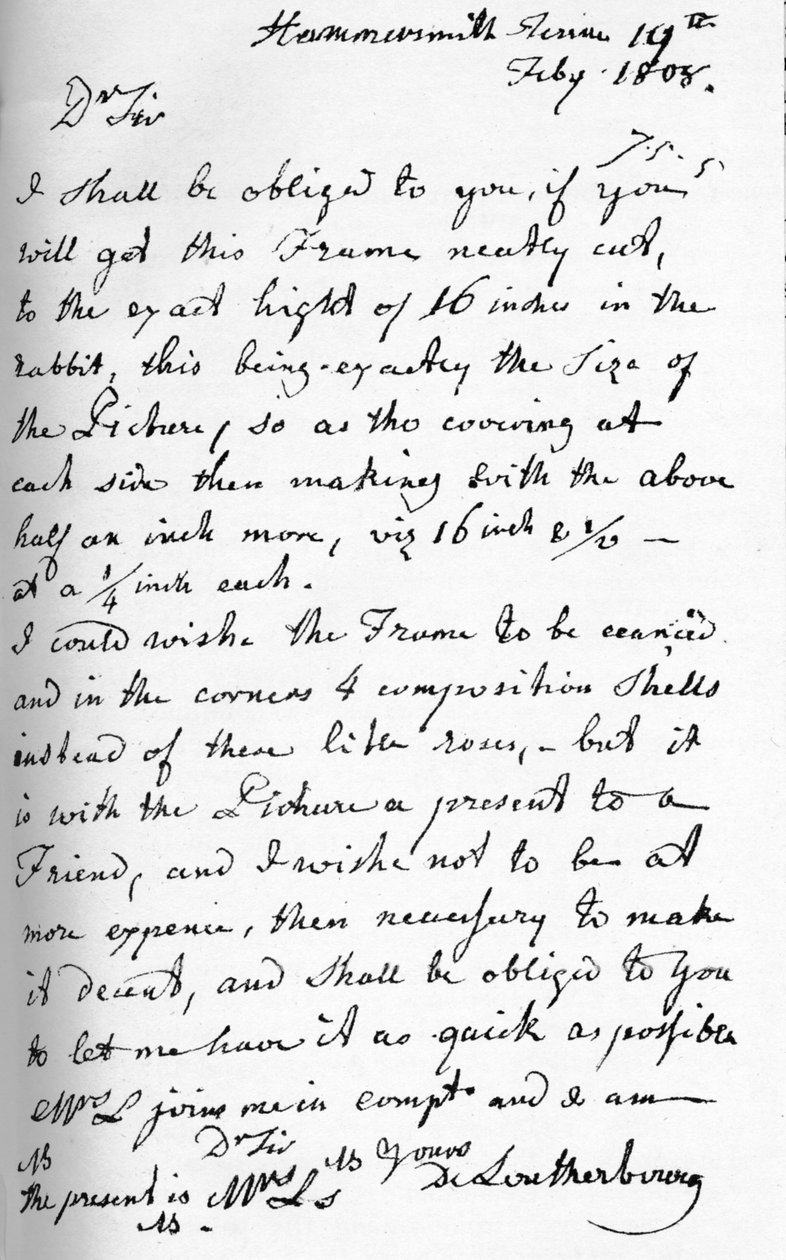 Hammersmith Terrace 19th
Feby 1808.
Dr Sir
7.5.5
I shall be obliged to you, if you
will get this Frame neatly cut,
to the exact hight of 16 inches in the
rabbit, this being exactly the Size of
the Picture, so as tho covering at
each side then making with the above
half an inch more, viz 16 inch & 1/2 —
at a 1/4 inch each.
I could wishe the Frame to be
and in the corners 4 composition Shells
instead of these little roses, - but it
is with the Picture a present to a
Friend, and I wishe not to be at
more expence, then necessary to make
it decent, and Shall be obliged to you
to let me have it as quick as possible
Mrs L joins me in compts and I am —
Dr Sir
Yours
De Loutherbourg
NB
the present is Mrs Ls
NB
NB.